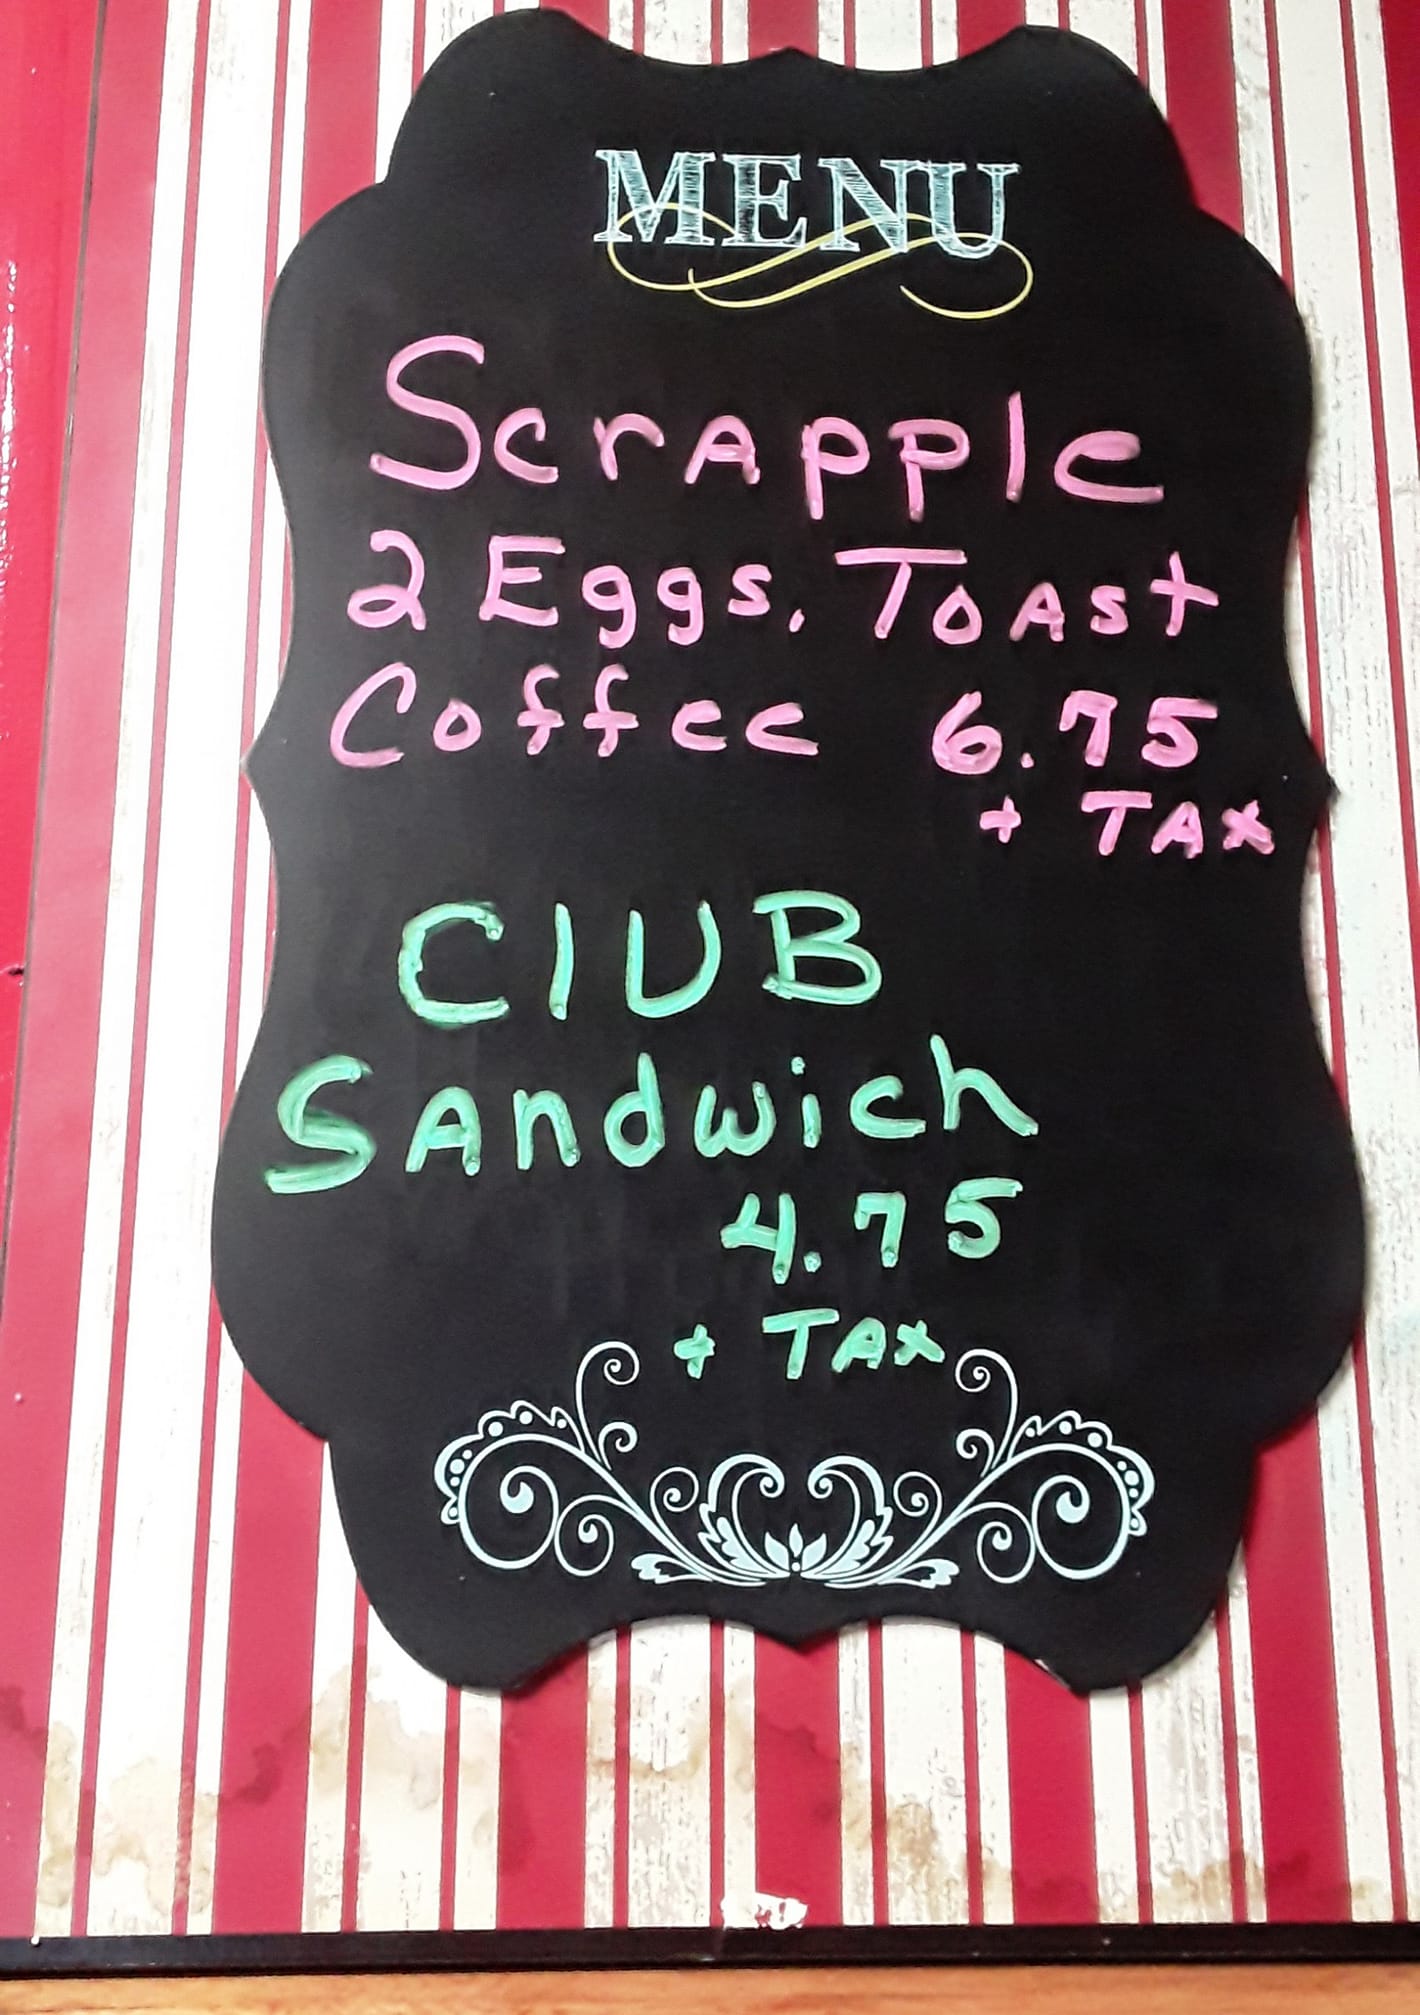 MENU
Scrapple
2 Eggs, Toast
Coffee 6.75
+ TAX
ClUB
Sandwich
4.75
+ TAX